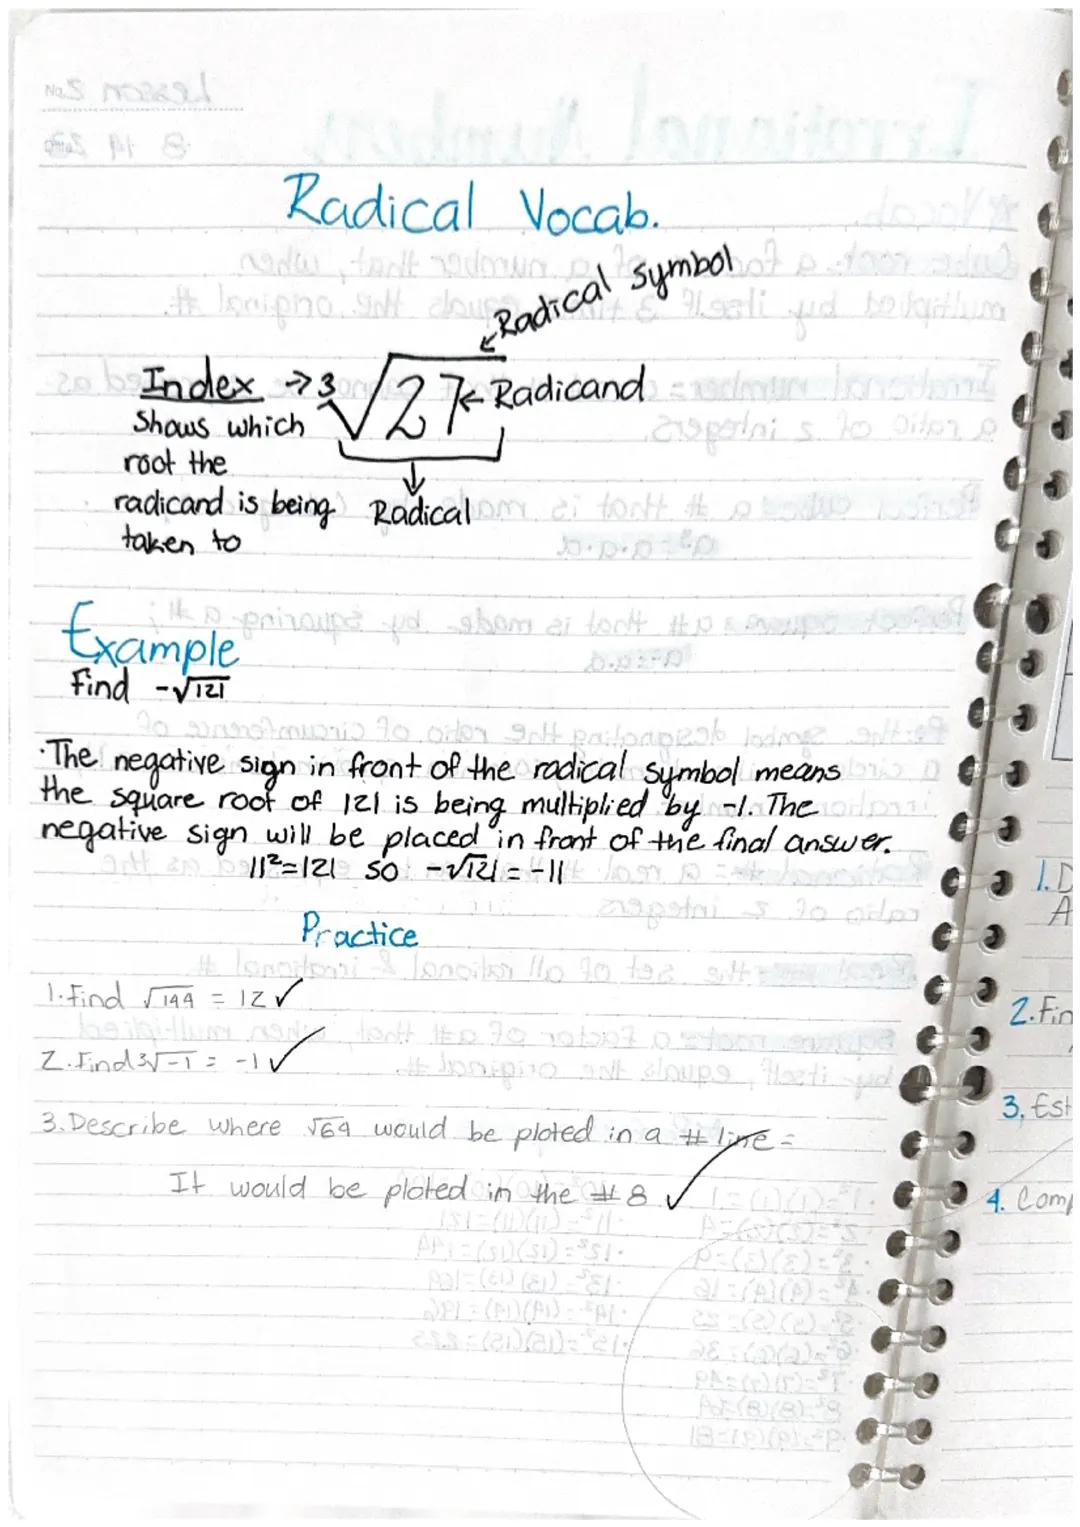 Radical Vocab.
Radical Symbol
Index → 3√27 ← Radicand
Shows which
root the
radicand is being
taken to
Radical
Example
Find -√121
·The negative sign in front of the radical symbol means
the square root of 121 is being multiplied by -1. The
negative sign will be placed in front of the final answer.
11²=121 so -√121 = -11
Practice
1. Find √144 = 12 ✓
2. Find 3√-1 = -1 ✓
3. Describe where √64 would be ploted in a # line =
It would be ploted in the # 8 ✓
1. D
A
2. Fin
3. Est
4. Comp